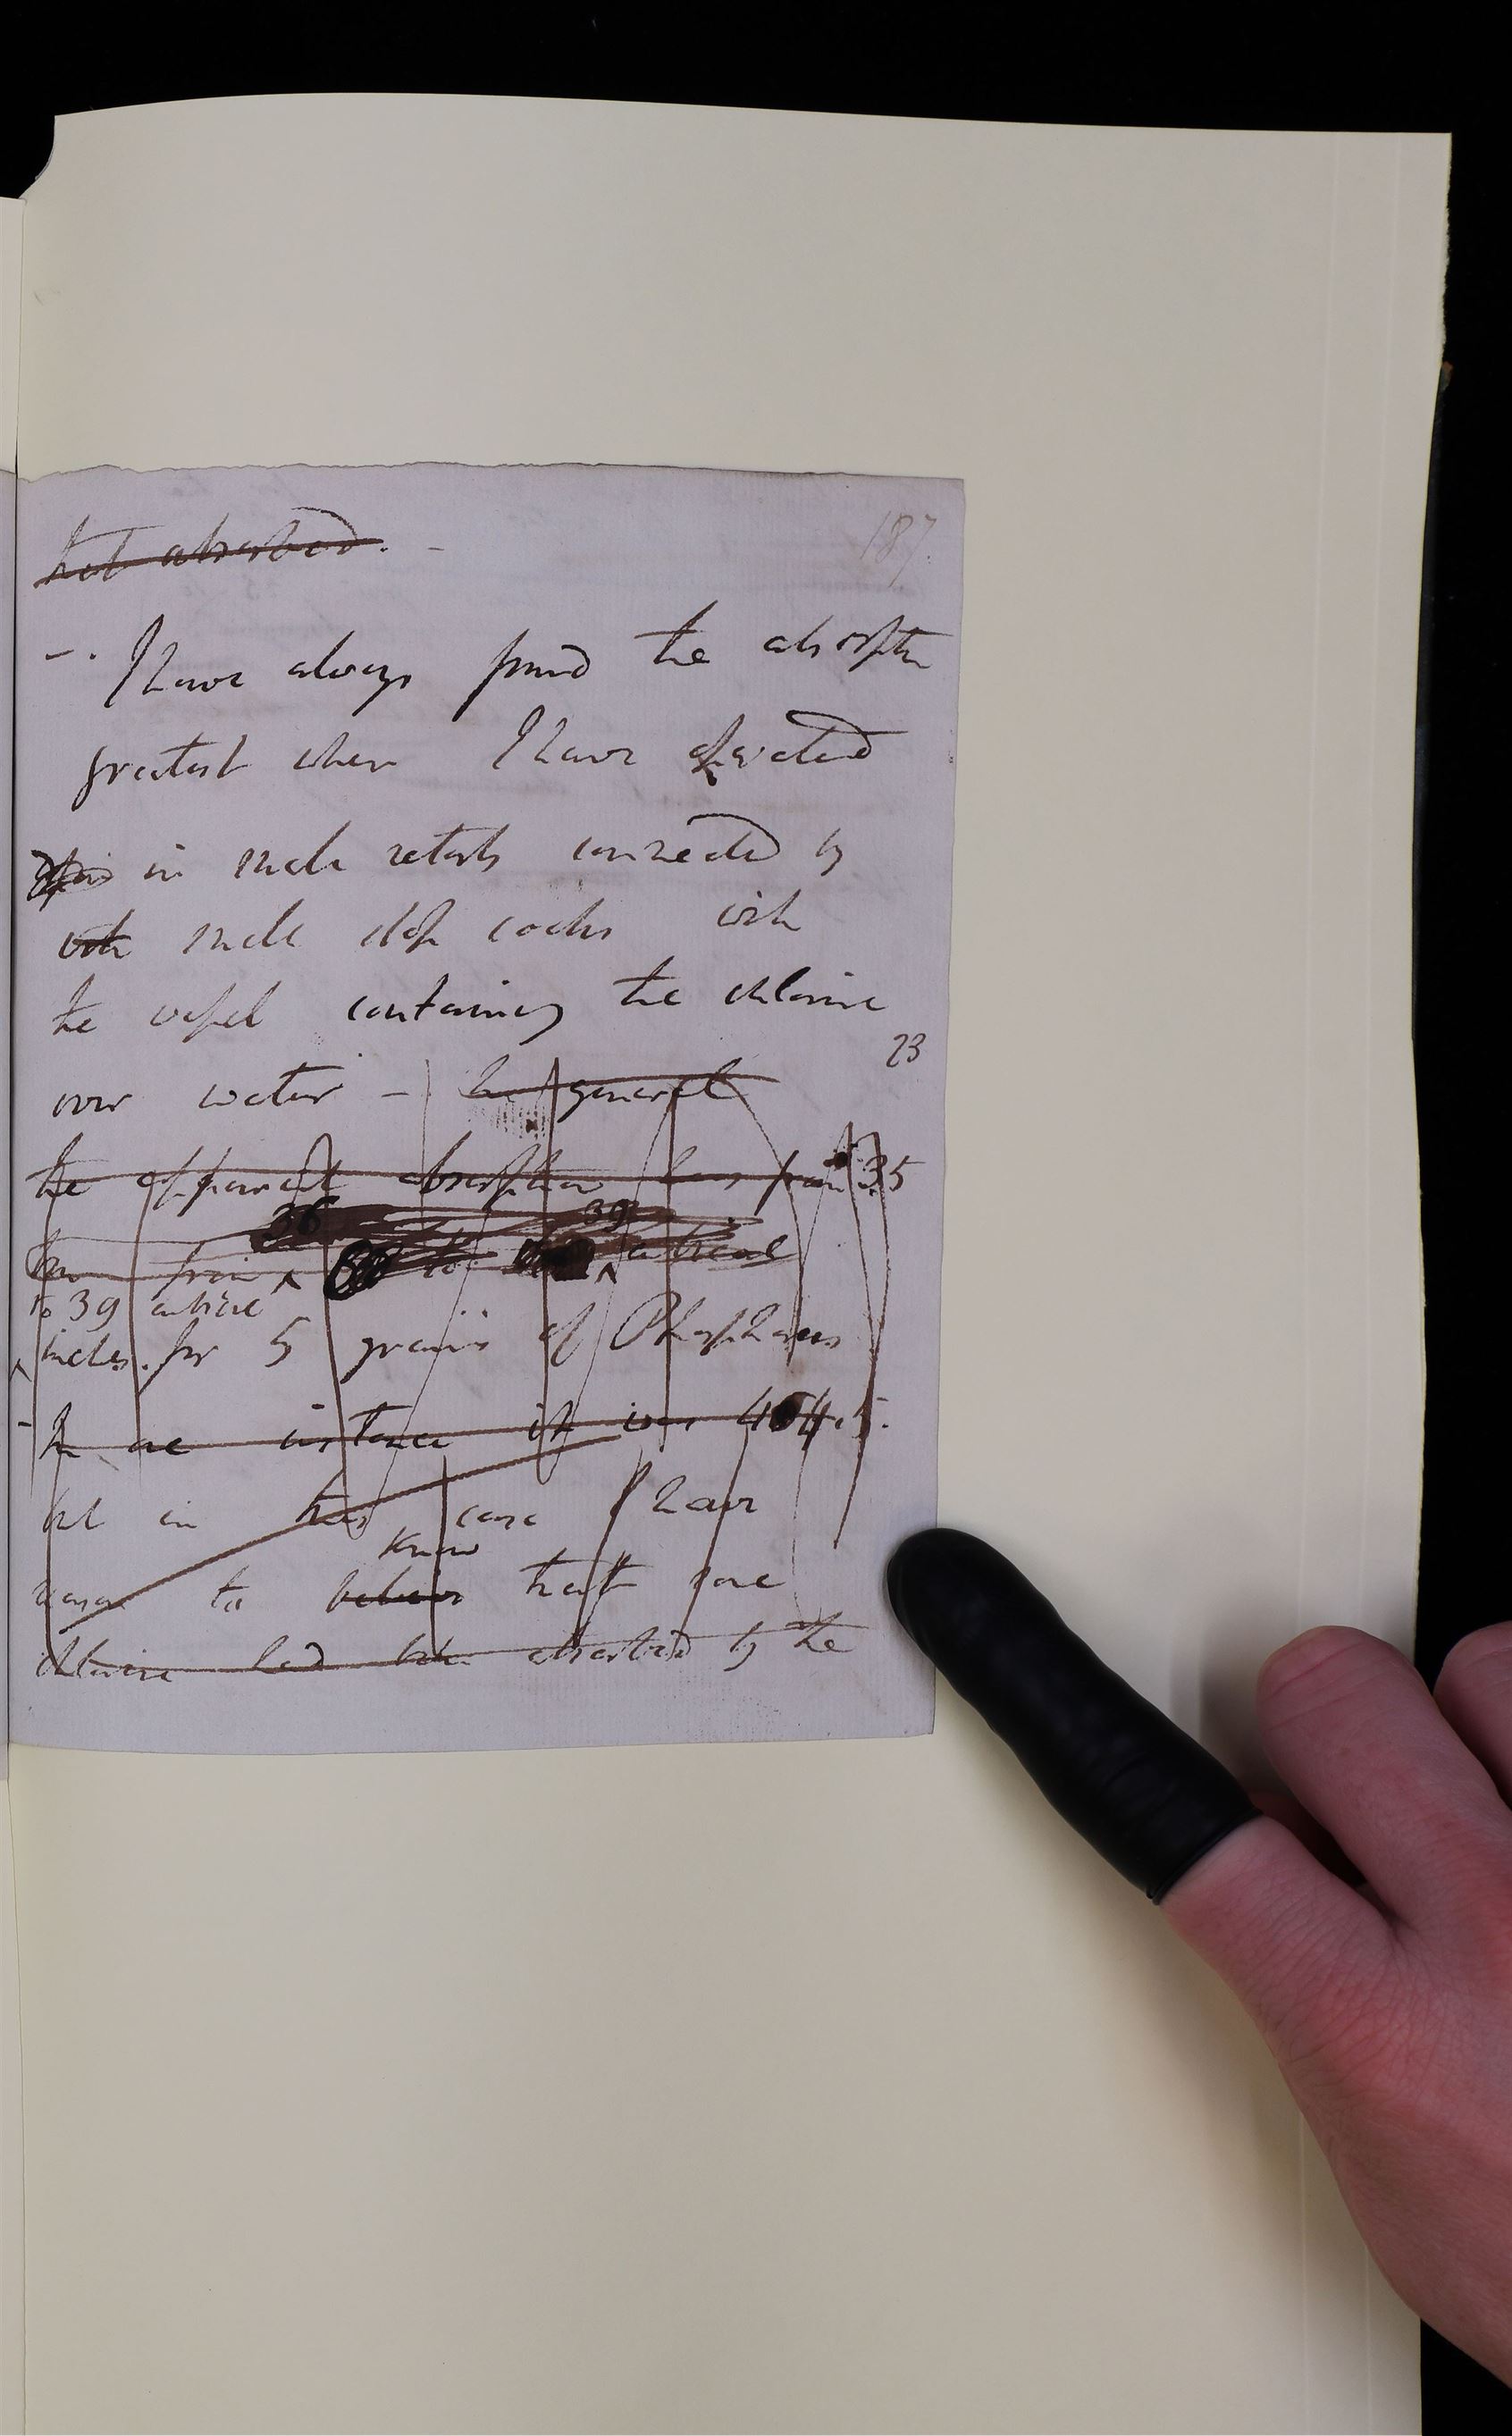 187.
not absorbed. -
-. I have always found the absorption
greatest when I have operated
in small retorts connected by
with small stop cocks with
the vessel containing the chlorine
over water - In general
23
the apparent absorption has from 35
36 39
from to cubical
to 39 cubical
inches. for 5 grains of Phosphorus
- In one instance it was 4 4.5.
but in this case I have
know
reason to believe that some
chlorine had been absorbed by the